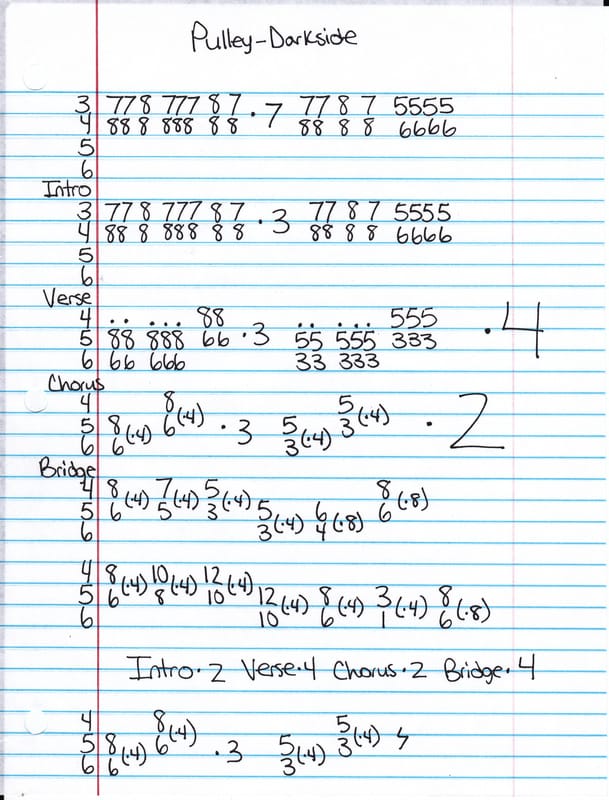 Pulley-Darkside
3 77 8 777 8 7 . 7 77 8 7 5555
4 88 8 888 8 8 88 8 8 6666
5
6
Intro
3 77 8 777 8 7 . 3 77 8 7 5555
4 88 8 888 8 8 88 8 8 6666
5
6
Verse
4 .. ... 88 .. ... 555
5 88 888 66 . 3 55 555 333 . 4
6 66 666 33 333
Chorus
4 8 5
5 8 6(.4) . 3 5 3(.4) . 2
6 6(.4) 3(.4)
Bridge
4 8 7 5 8
5 6(.4) 5(.4) 3(.4) 5 6 6(.8)
6 3(.4) 4(.8)
4 8 10 12
5 6(.4) 8(.4) 10(.4) 12 8 3 8
6 10(.4) 6(.4) 1(.4) 6(.8)
Intro.2 Verse.4 Chorus.2 Bridge.4
4 8 5
5 8 6(.4) . 3 5 3(.4)
6 6(.4) 3(.4)